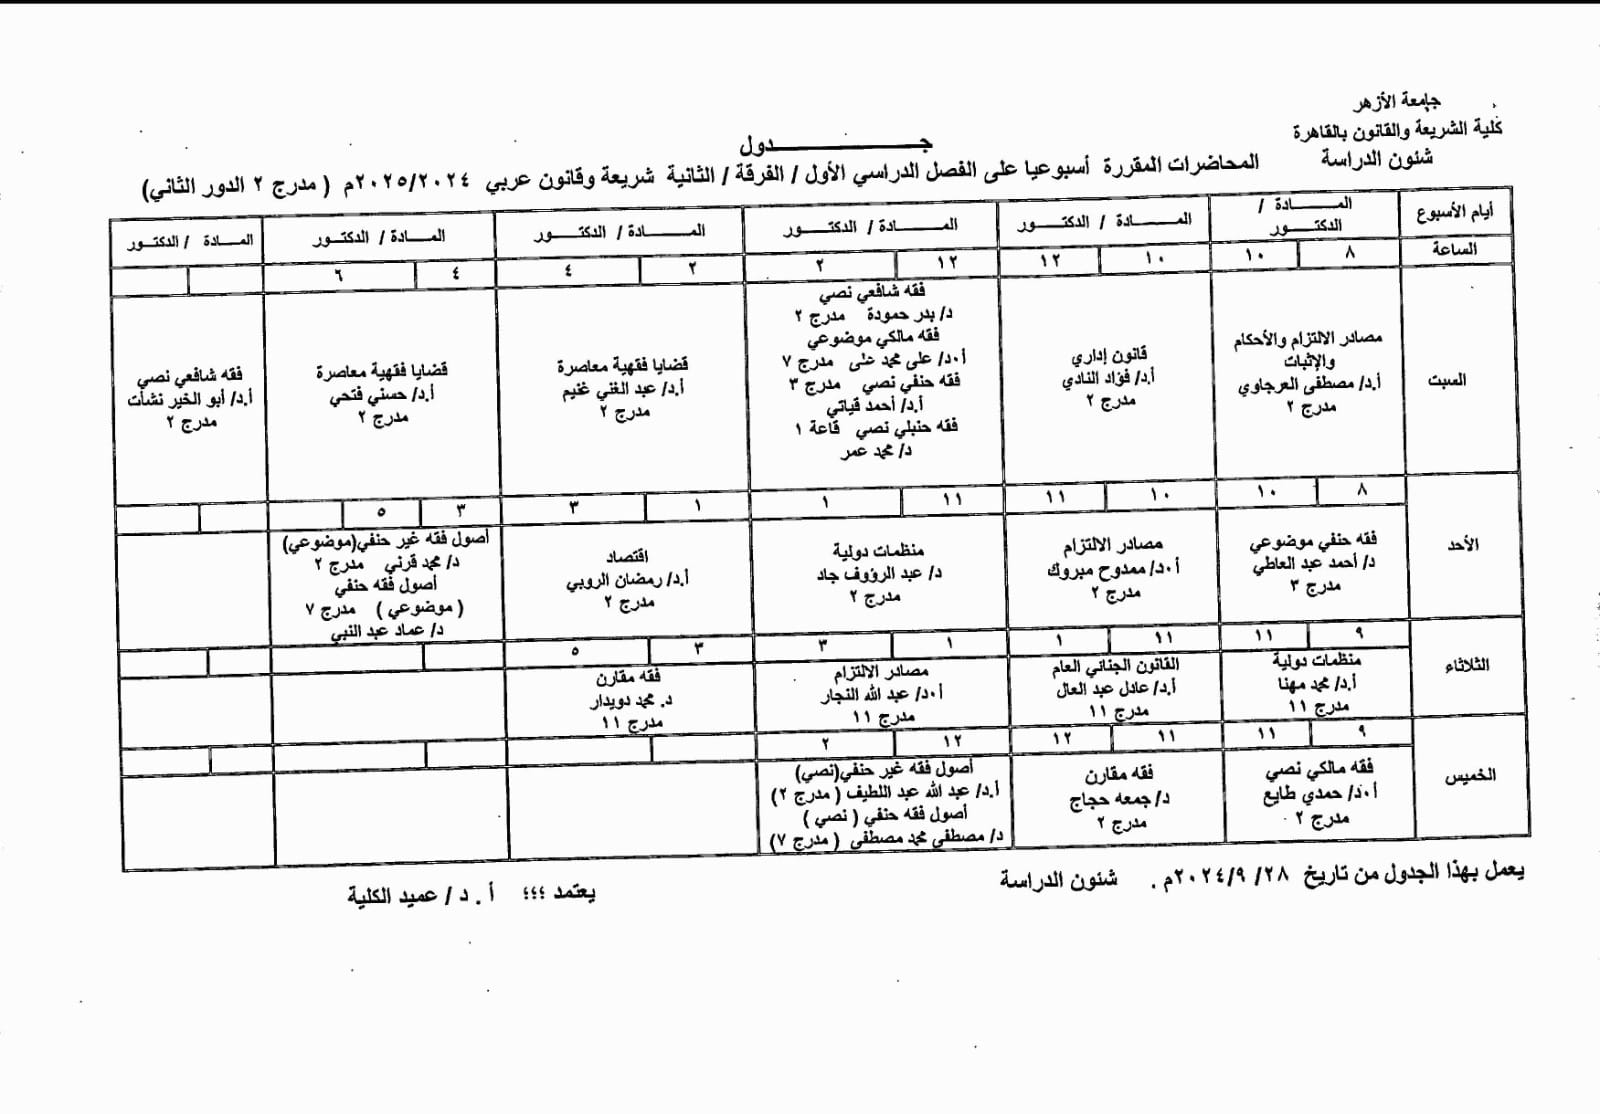 جامعة الأزهر
كلية الشريعة والقانون بالقاهرة
شئون الدراسة
جـــــــــدول
المحاضرات المقررة أسبوعيا على الفصل الدراسي الأول / الفرقة / الثانية شريعة وقانون عربي ٢٠٢٥/٢٠٢٤م ( مدرج ٢ الدور الثاني)
أيام الأسبوع
المــــادة / الدكتـــور
المــــادة / الدكتـــور
المــــادة / الدكتـــور
المــــادة / الدكتـــور
المــــادة / الدكتـــور
المــــادة / الدكتـــور
الساعة
٨ ١٠
١٠ ١٢
١٢ ٢
٢ ٤
٤ ٦
السبت
مصادر الالتزام والأحكام
والإثبات
أ.د/ مصطفى العرجاوي
مدرج ٢
قانون إداري
أ.د/ فؤاد النادي
مدرج ٢
فقه شافعي نصي
د/ بدر حمودة مدرج ٢
فقه مالكي موضوعي
أ.د/ على محمد على مدرج ٧
فقه حنفي نصي مدرج ٣
أ.د/ أحمد قياتي
فقه حنبلي نصي قاعة ١
د/ محمد عمر
قضايا فقهية معاصرة
أ.د/ عبد الغني غنيم
مدرج ٢
قضايا فقهية معاصرة
أ.د/ حسني فتحي
مدرج ٢
فقه شافعي نصي
أ.د/ أبو الخير نشأت
مدرج ٢
٨ ١٠
١٠ ١١
١١ ١
١ ٣
٣ ٥
الأحد
فقه حنفي موضوعي
د/ أحمد عبد العاطي
مدرج ٣
مصادر الالتزام
أ.د/ ممدوح مبروك
مدرج ٢
منظمات دولية
د/ عبد الرؤوف جاد
مدرج ٢
اقتصاد
أ.د/ رمضان الروبي
مدرج ٢
أصول فقه غير حنفي(موضوعي)
د/ محمد قرني مدرج ٢
أصول فقه حنفي
( موضوعي ) مدرج ٧
د/ عماد عبد النبي
٩ ١١
١١ ١
١ ٣
٣ ٥
الثلاثاء
منظمات دولية
أ.د/ محمد مهنا
مدرج ١١
القانون الجنائي العام
أ.د/ عادل عبد العال
مدرج ١١
مصادر الالتزام
أ.د/ عبد الله النجار
مدرج ١١
فقه مقارن
د. محمد دويدار
مدرج ١١
٩ ١١
١١ ١٢
١٢ ٢
الخميس
فقه مالكي نصي
أ.د/ حمدي طايع
مدرج ٢
فقه مقارن
د/ جمعه حجاج
مدرج ٢
أصول فقه غير حنفي(نصي)
أ.د/ عبد الله عبد اللطيف ( مدرج ٢)
أصول فقه حنفي ( نصي )
د/ مصطفى محمد مصطفى ( مدرج ٧)
يعمل بهذا الجدول من تاريخ ٢٨ /٩ /٢٠٢٤م . شئون الدراسة يعتمد ؛؛؛ أ . د / عميد الكلية